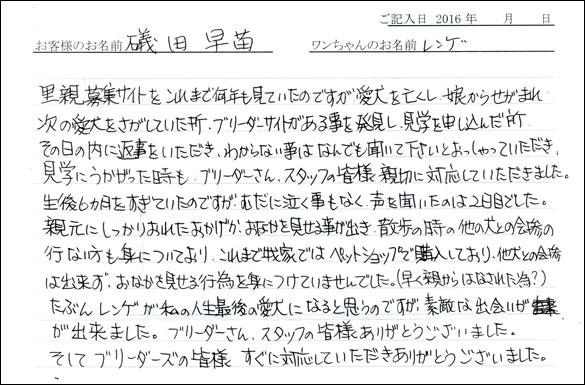 ご記入日 2016年 月 日
お客様のお名前 礒田早苗 ワンちゃんのお名前 レンゲ
里親募集サイトをこれまで何年も見ていたのですが愛犬を亡くし、娘からせがまれ
次の愛犬をさがしていた所、ブリーダーサイトがある事を発見し、見学を申し込んだ所
その日の内に返事をいただき、わからない事はなんでも聞いて下さいとおっしゃっていただき、
見学にうかがった時も、ブリーダーさん、スタッフの皆様 親切に対応していただきました。
生後6カ月をすぎていたのですが、むだに泣く事もなく、声を聞いたのは2日目でした。
親元にしっかりおれたおかげか、おなかを見せる事が出き、散歩の時の他の犬との会話の
行ない方も身についており、これまで我家ではペットショップで購入しており、他犬との会話
は出来ず、おなかを見せる行為を身につけていませんでした。(早く親からはなされた為?)
たぶんレンゲが私の人生最後の愛犬になると思うのですが、素敵な出会いが
が出来ました。ブリーダーさん、スタッフの皆様ありがとうございました。
そしてブリーダーズの皆様 すぐに対応していただきありがとうございました。